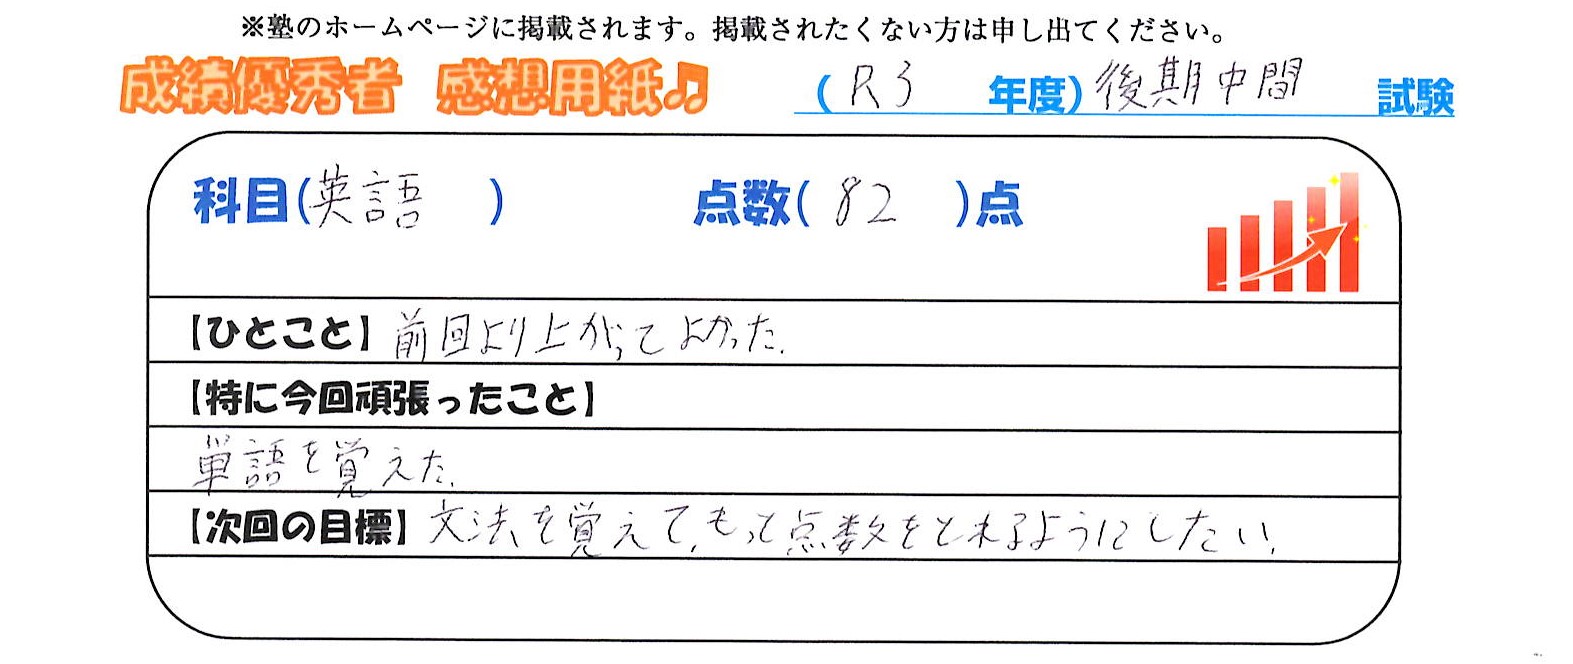 ※塾のホームページに掲載されます。掲載されたくない方は申し出てください。
成績優秀者 感想用紙♫ (R3 年度)後期中間 試験
科目(英語 ) 点数( 82 )点
【ひとこと】前回より上がってよかった.
【特に今回頑張ったこと】
単語を覚えた.
【次回の目標】文法を覚えて、もっと点数をとれるようにしたい.